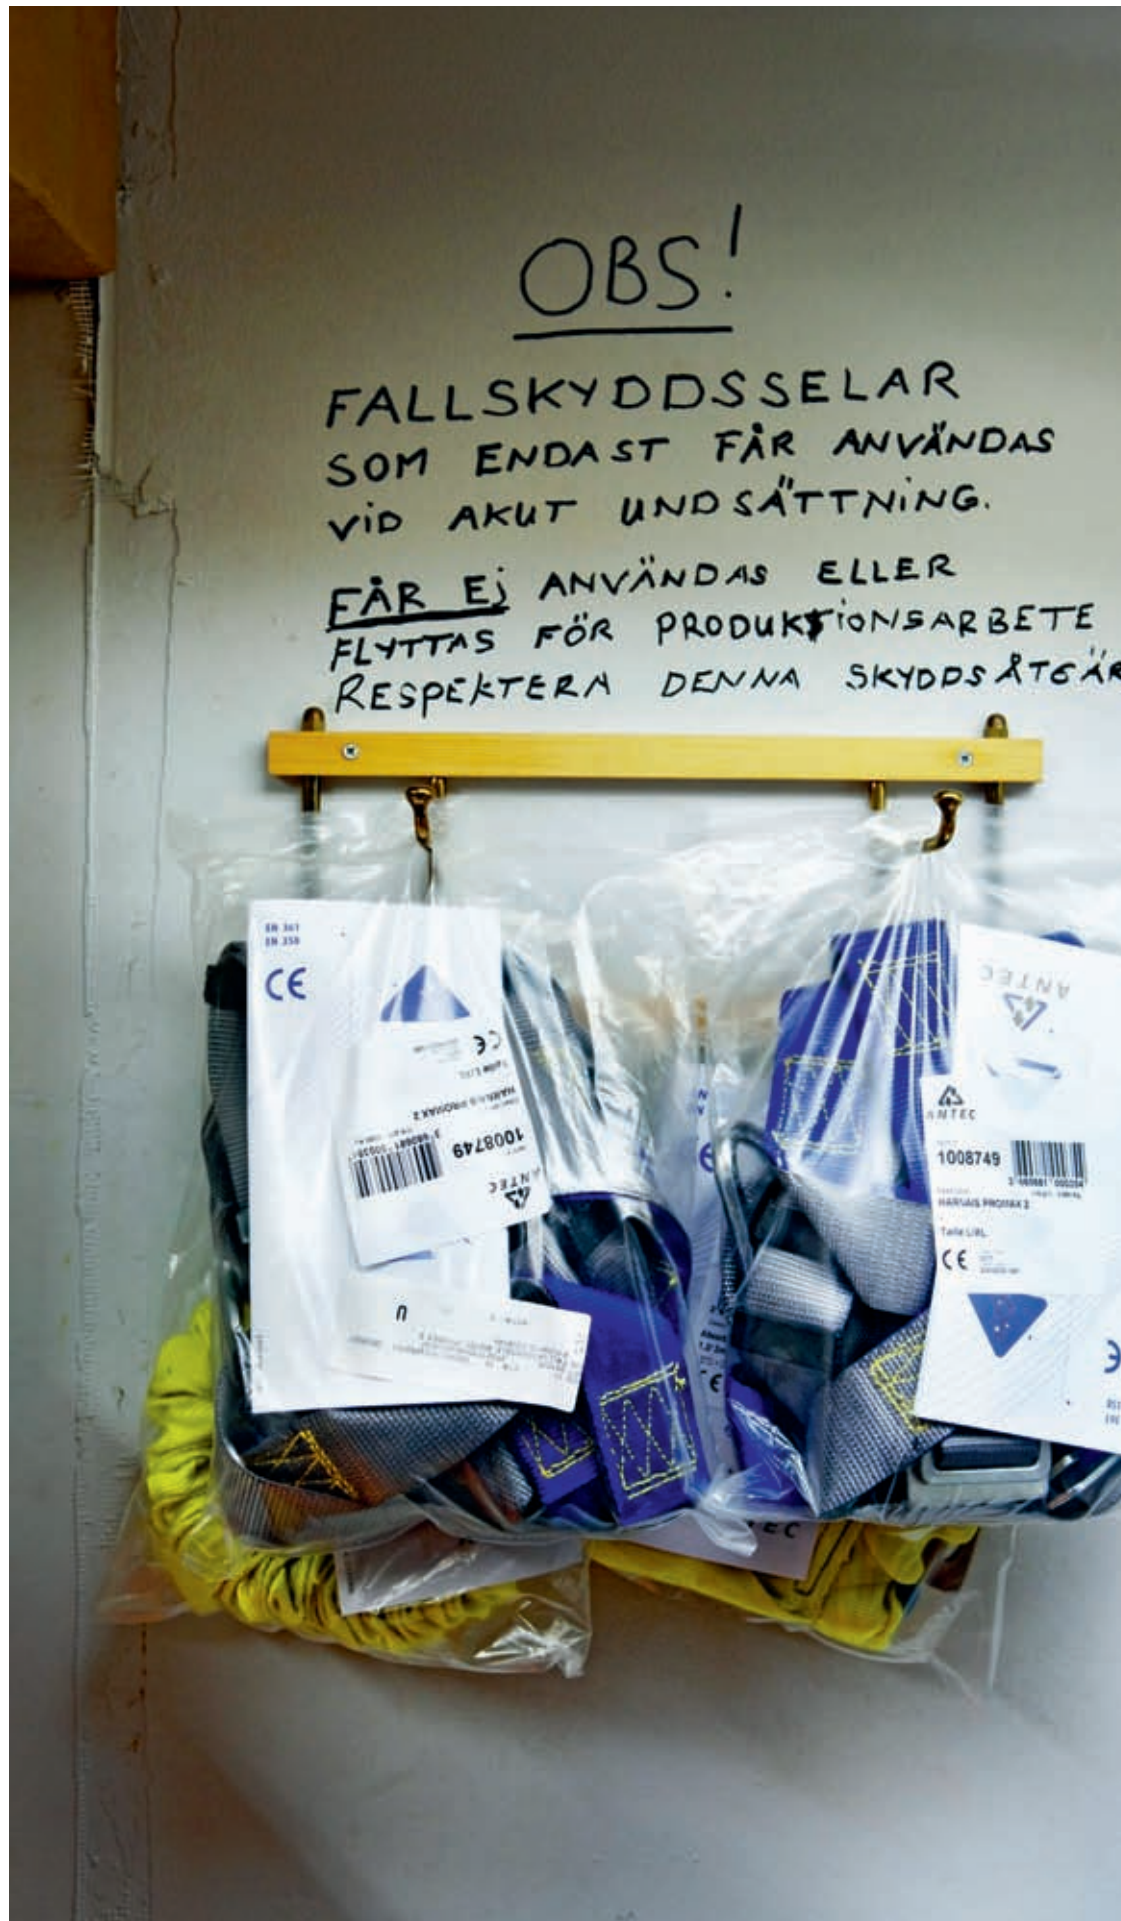 OBS!
FALLSKYDDSSELAR
SOM ENDAST FÅR ANVÄNDAS
VID AKUT UNDSÄTTNING.
FÅR Ej ANVÄNDAS ELLER
FLYTTAS FÖR PRODUKTIONSARBETE
RESPEKTERA DENNA SKYDDSÅTGÄR
EN 361
EN 358
CE
CE
Taille L/XL
HARNAIS PROMAX 2
1008749
ANTEC
ANTEC
ANTEC
1008749
HARNAIS PROMAX 2
Taille L/XL
CE